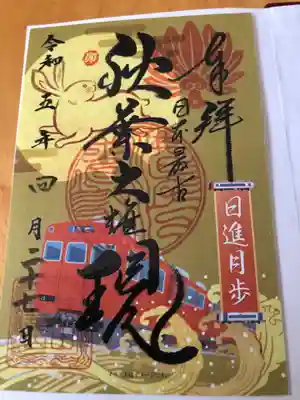 奉拝
日本最古
秋葉大権現
日進月歩
令和五年四月二十七日
卯